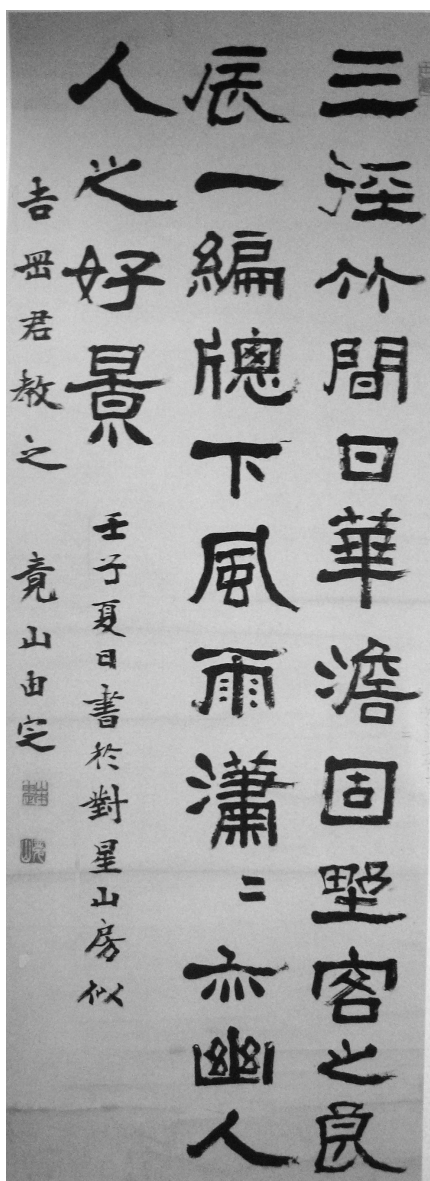 三徑竹間日華澹固野客之良
辰一編牕下風雨瀟〻亦幽人
人之好景
壬子夏日書於對星山房似
吉岡君教之 竟山由定